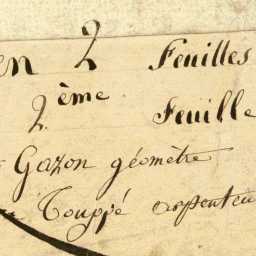 en 2 Feuilles
2ème Feuille
Gazon géomètre
Touppé arpenteu